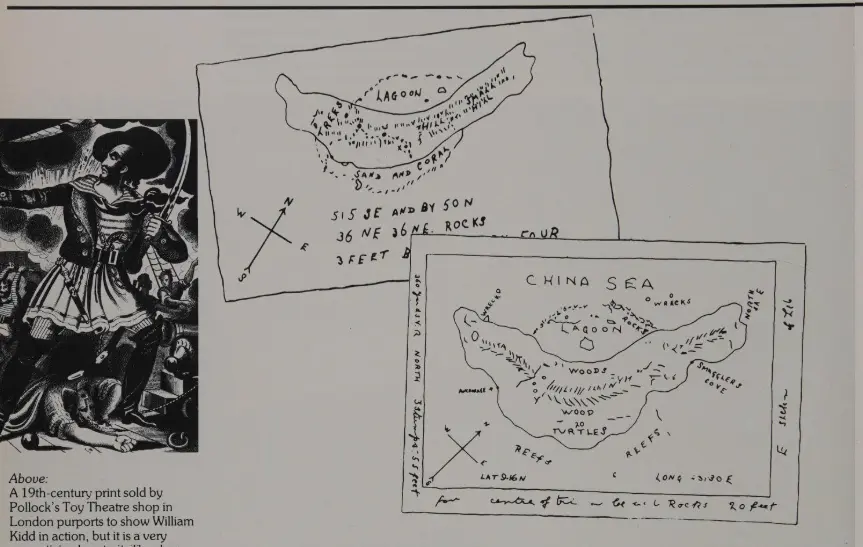 LAGOON
TREES
HILL
SMALL
HILL
SAND AND CORAL
N
W
E
S
515 SE AND BY 50 N
36 NE 36 NE. ROCKS
3 FEET
FOUR
CHINA SEA
WRECKS
NORTH
WRECKS
ROCKS
LAGOON
WOODS
SMUGGLERS
COVE
ANCHORAGE
WOOD
20
TURTLES
REEFS
REEFS
LAT 9-16N
LONG -31:30 E
NORTH
55 feet
E
for centre of tri
Rocks 20 feet
Above:
A 19th-century print sold by
Pollock's Toy Theatre shop in
London purports to show William
Kidd in action, but it is a very